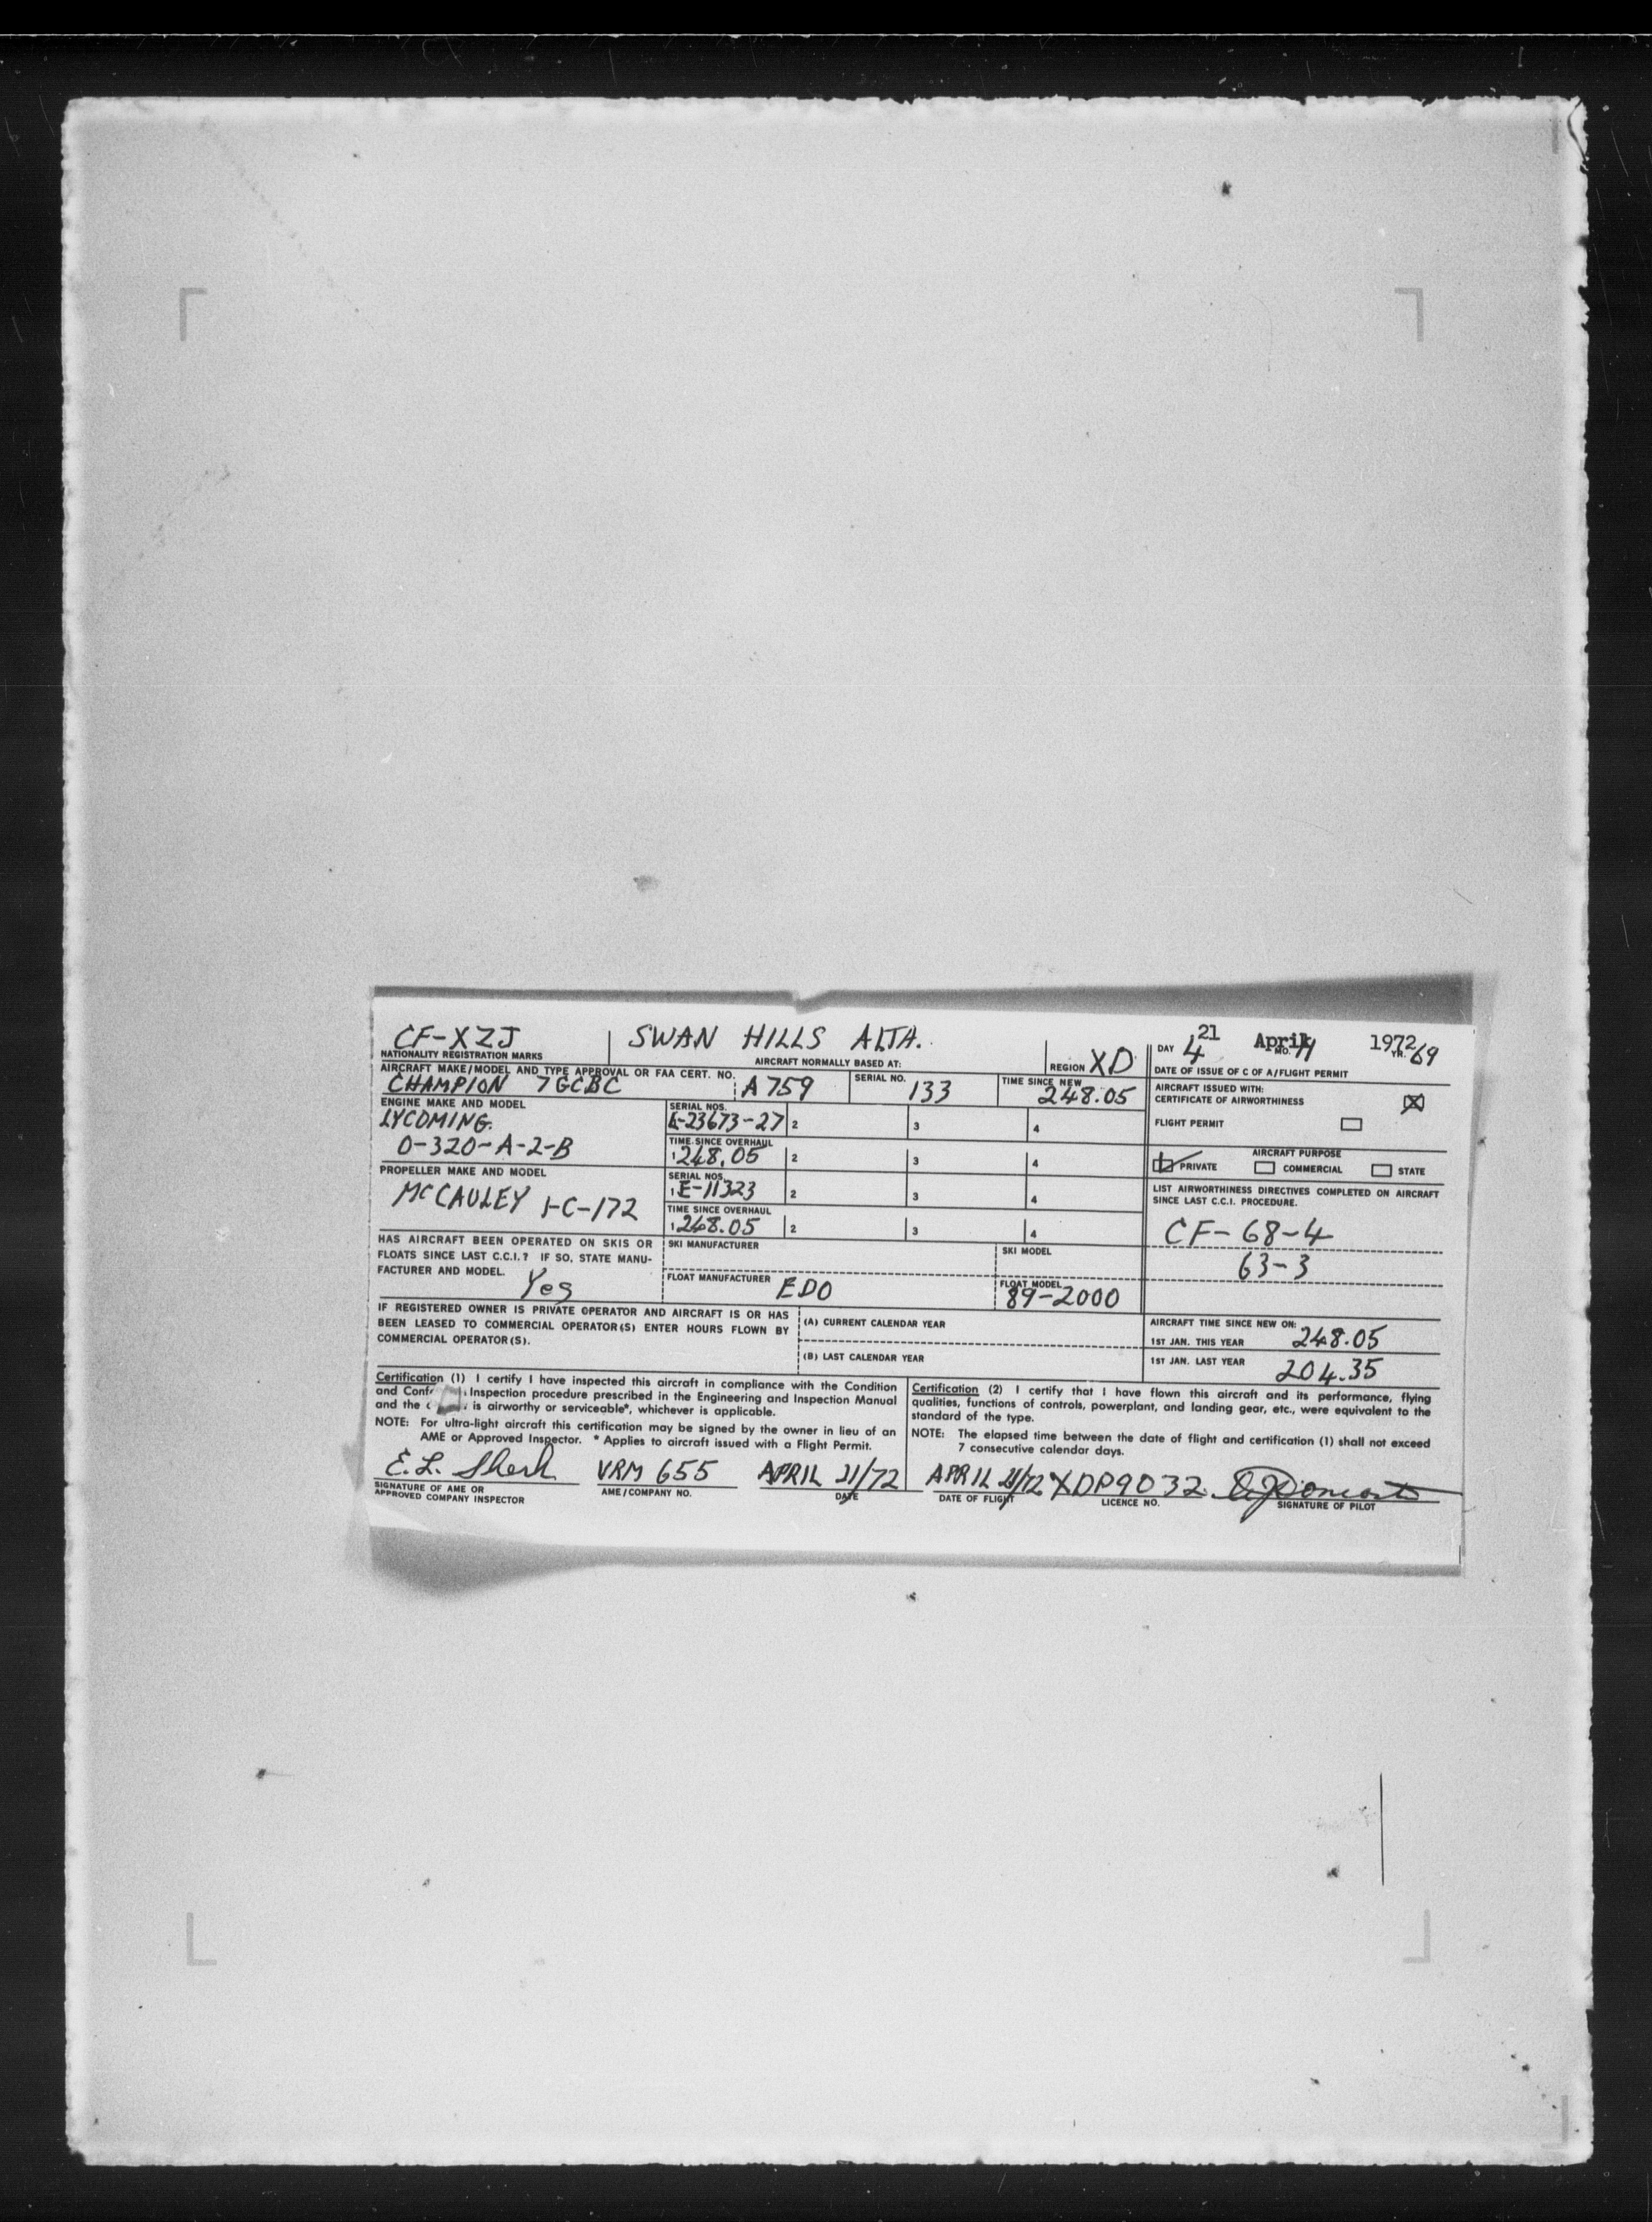 CF-XZJ SWAN HILLS ALTA. REGION XD DAY 4 21 April MO. 11 1972 YR. 69
NATIONALITY REGISTRATION MARKS AIRCRAFT NORMALLY BASED AT: DATE OF ISSUE OF C OF A/FLIGHT PERMIT
AIRCRAFT MAKE/MODEL AND TYPE APPROVAL OR FAA CERT. NO. SERIAL NO. TIME SINCE NEW
CHAMPION 7GCBC A759 133 248.05
AIRCRAFT ISSUED WITH:
CERTIFICATE OF AIRWORTHINESS
FLIGHT PERMIT
ENGINE MAKE AND MODEL
LYCOMING
O-320-A-2-B
SERIAL NOS.
-23673-27 2 3 4
TIME SINCE OVERHAUL
1 248.05 2 3 4
AIRCRAFT PURPOSE
PRIVATE COMMERCIAL STATE
PROPELLER MAKE AND MODEL
McCAULEY 1-C-172
SERIAL NOS.
1 E-11323 2 3 4
TIME SINCE OVERHAUL
1 248.05 2 3 4
LIST AIRWORTHINESS DIRECTIVES COMPLETED ON AIRCRAFT
SINCE LAST C.C.I. PROCEDURE.
CF-68-4
63-3
HAS AIRCRAFT BEEN OPERATED ON SKIS OR
FLOATS SINCE LAST C.C.I.? IF SO, STATE MANU-
FACTURER AND MODEL.
Yes
SKI MANUFACTURER SKI MODEL
FLOAT MANUFACTURER EDO FLOAT MODEL
89-2000
IF REGISTERED OWNER IS PRIVATE OPERATOR AND AIRCRAFT IS OR HAS
BEEN LEASED TO COMMERCIAL OPERATOR(S) ENTER HOURS FLOWN BY
COMMERCIAL OPERATOR(S).
(A) CURRENT CALENDAR YEAR
(B) LAST CALENDAR YEAR
AIRCRAFT TIME SINCE NEW ON:
1ST JAN. THIS YEAR 248.05
1ST JAN. LAST YEAR 204.35
Certification (1) I certify I have inspected this aircraft in compliance with the Condition
and Conf Inspection procedure prescribed in the Engineering and Inspection Manual
and the is airworthy or serviceable*, whichever is applicable.
NOTE: For ultra-light aircraft this certification may be signed by the owner in lieu of an
AME or Approved Inspector. * Applies to aircraft issued with a Flight Permit.
Certification (2) I certify that I have flown this aircraft and its performance, flying
qualities, functions of controls, powerplant, and landing gear, etc., were equivalent to the
standard of the type.
NOTE: The elapsed time between the date of flight and certification (1) shall not exceed
7 consecutive calendar days.
E.L. VRM 655 APRIL 21/72 APRIL 21/72 XDP9032
SIGNATURE OF AME OR AME/COMPANY NO. DATE DATE OF FLIGHT LICENCE NO. SIGNATURE OF PILOT
APPROVED COMPANY INSPECTOR